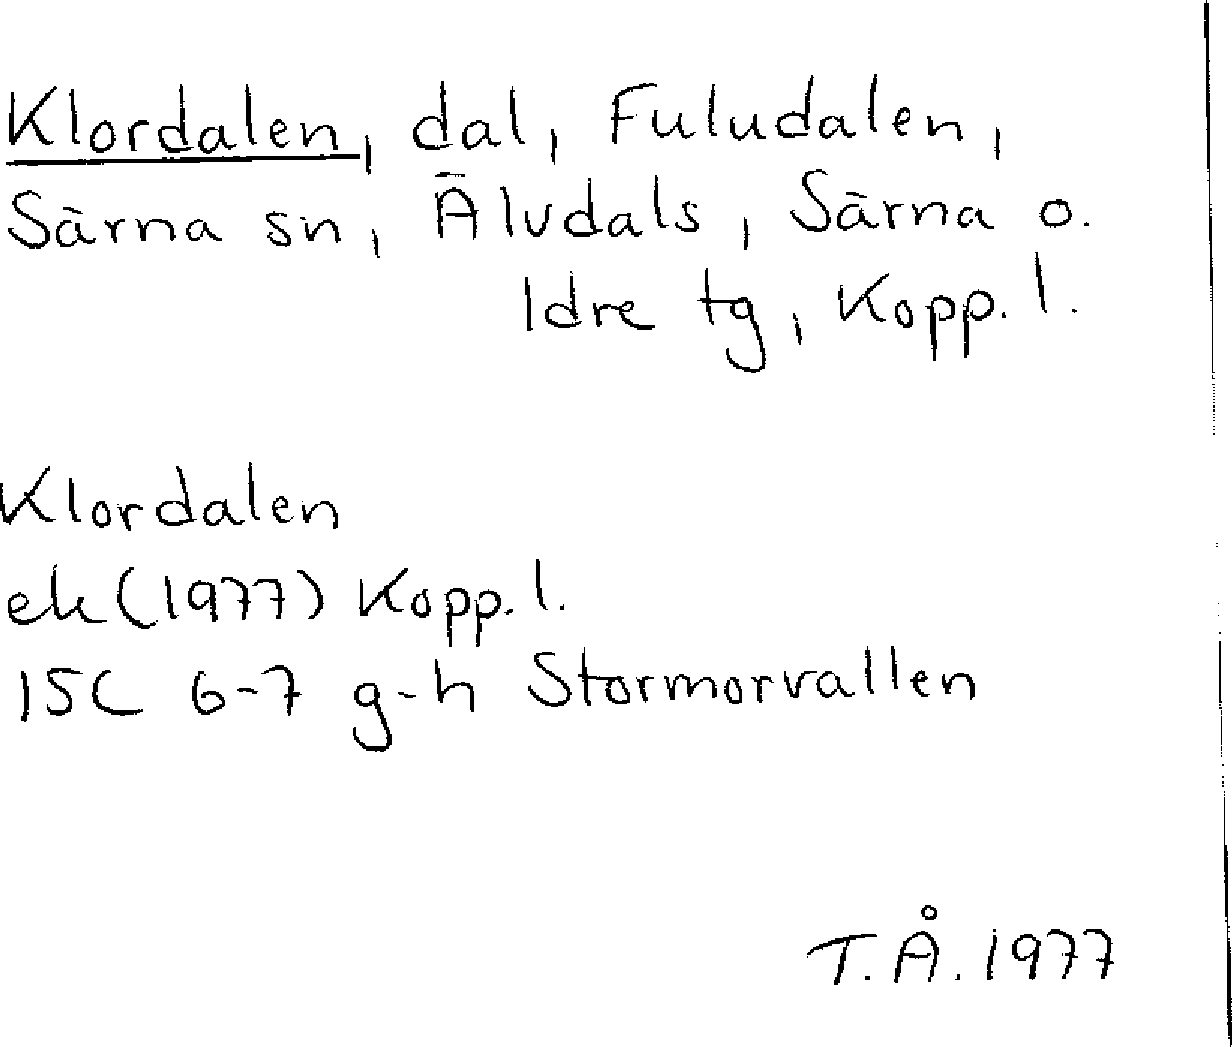 Klordalen, dal, Fuludalen,
Särna sn, Älvdals, Särna o.
Idre tg, Kopp. l.
Klordalen
ek (1977) Kopp. l.
15C 6-7 g-h Stormorvallen
T.Å. 1977